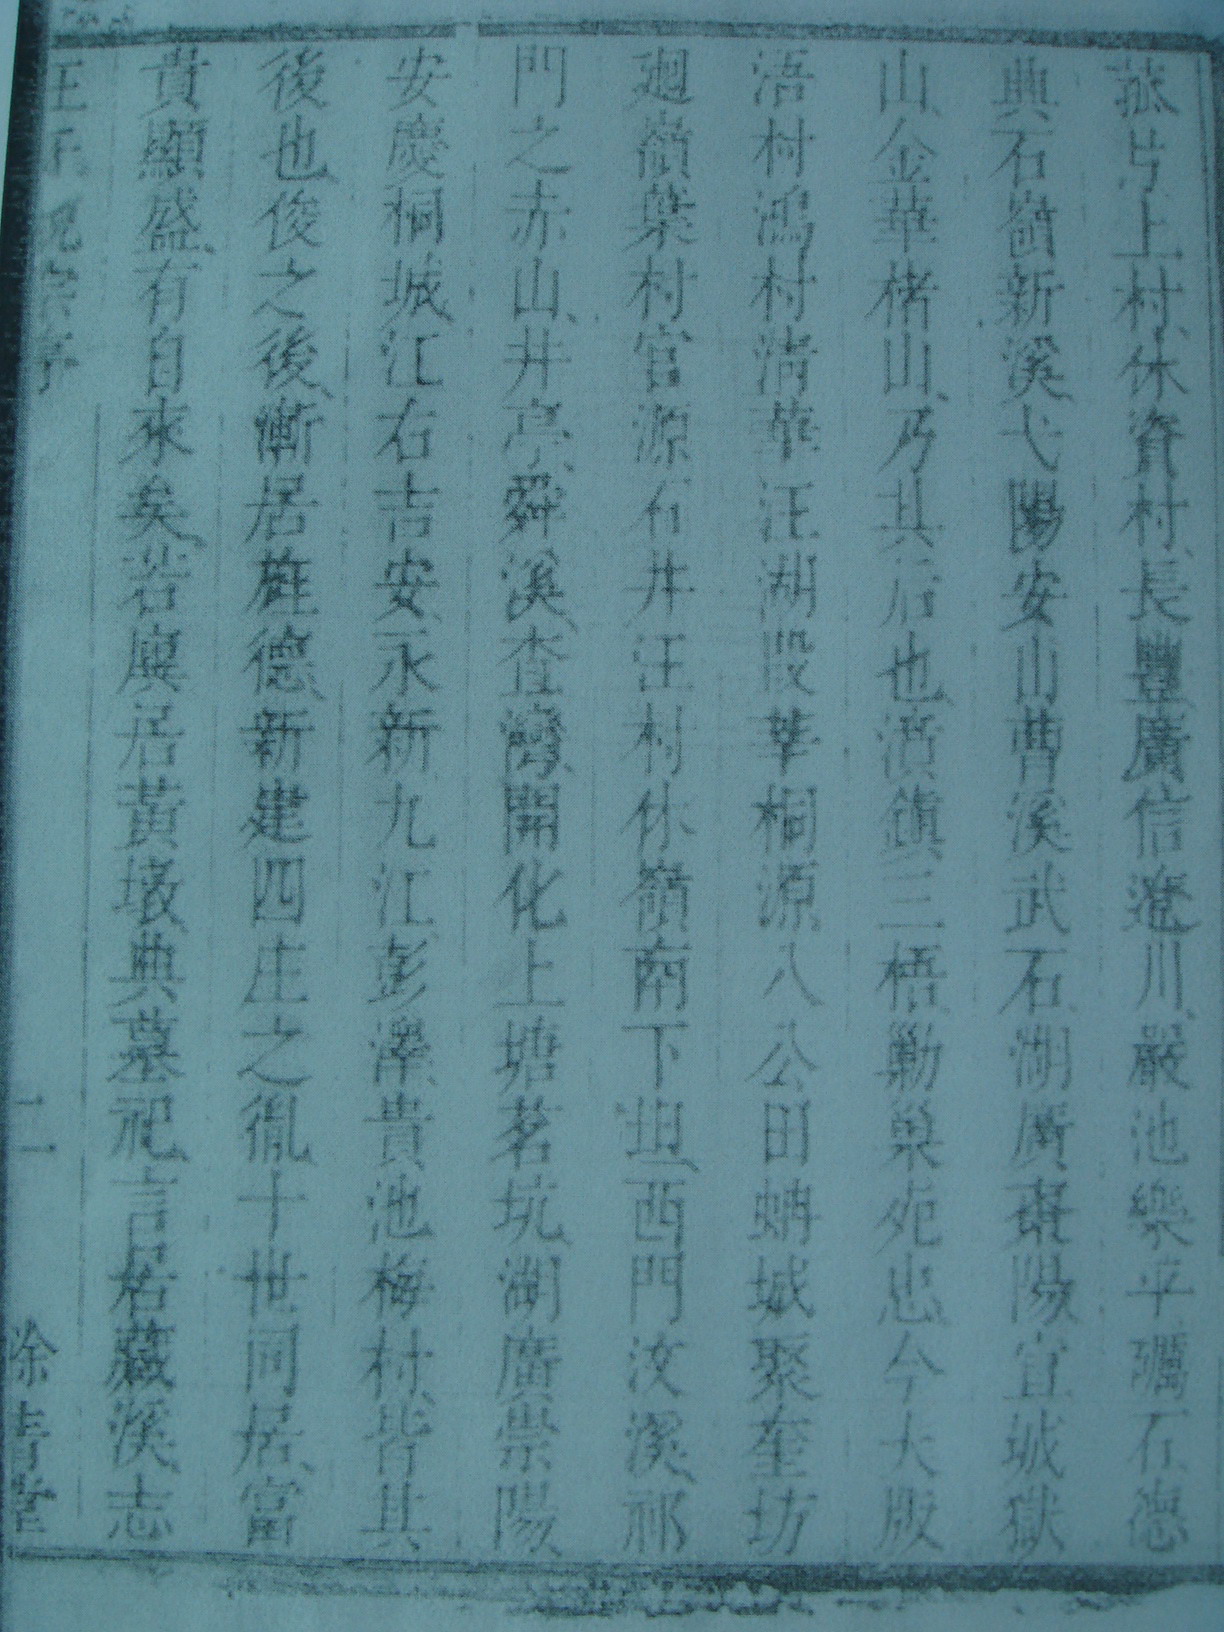 上村休資村長豐廣信滄川嚴池樂平礪石德
典石嶺新溪弋陽安山曹溪武石湖廣棗陽宜城獄
山金華楮山乃其后也濱鎮三梧勦巢死忠今大版
浯村鴻村清華汪湖段莘桐源八公田蚺城聚奎坊
廻嶺葉村官源石井汪村休嶺南下坦西門汶溪祁
門之赤山井亭舜溪查灣開化上塘茗坑湖廣崇陽
安慶桐城江右吉安永新九江彭澤貴池梅村皆其
後也俊之後漸居旌德新建四庄之胤十世同居富
貴顯盛有自來矣若廋居黃墩典墓祀言居藏溪志
二 餘青堂